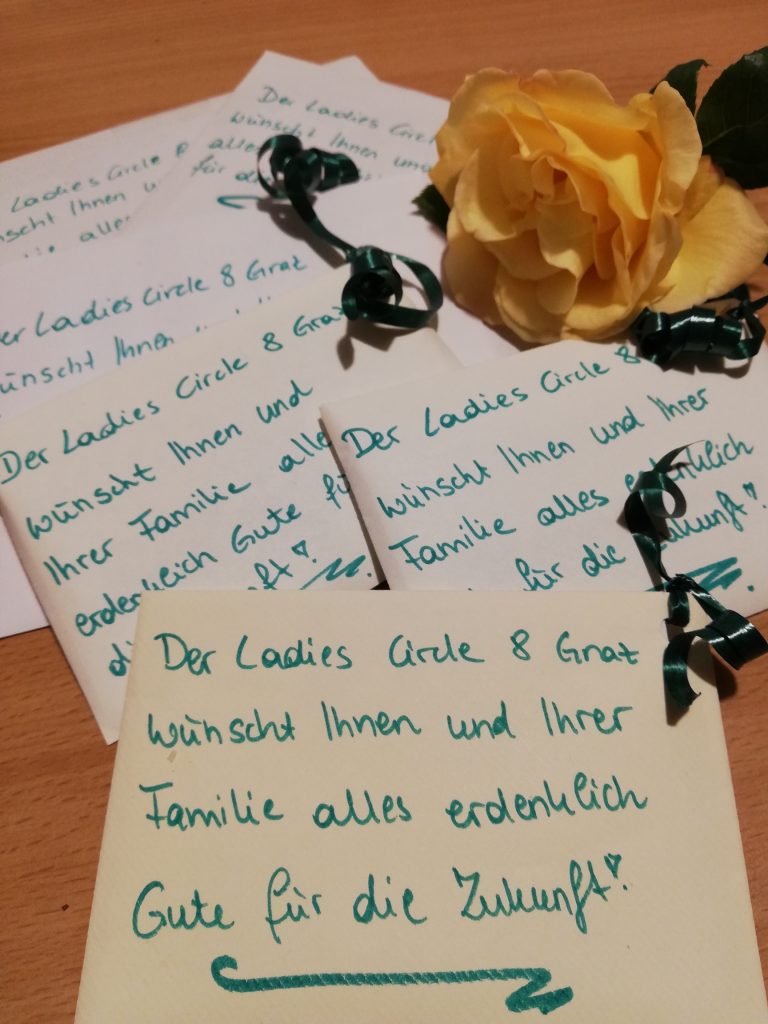 Der Ladies Circl
wünscht Ihnen und
alle
für di
Ladies Circle 8
nscht Ihnen u
alle
er Ladies Circle 8 Graz
ünscht Ihnen
Der Ladies Circle 8 Graz
wünscht Ihnen und
Ihrer Familie alle
erdenklich Gute fü
di ft!
Der Ladies Circle 8
wünscht Ihnen und Ihrer
Familie alles erdenklich
für die Zukunft!
Der Ladies Circle 8 Graz
wünscht Ihnen und Ihrer
Familie alles erdenklich
Gute für die Zukunft!